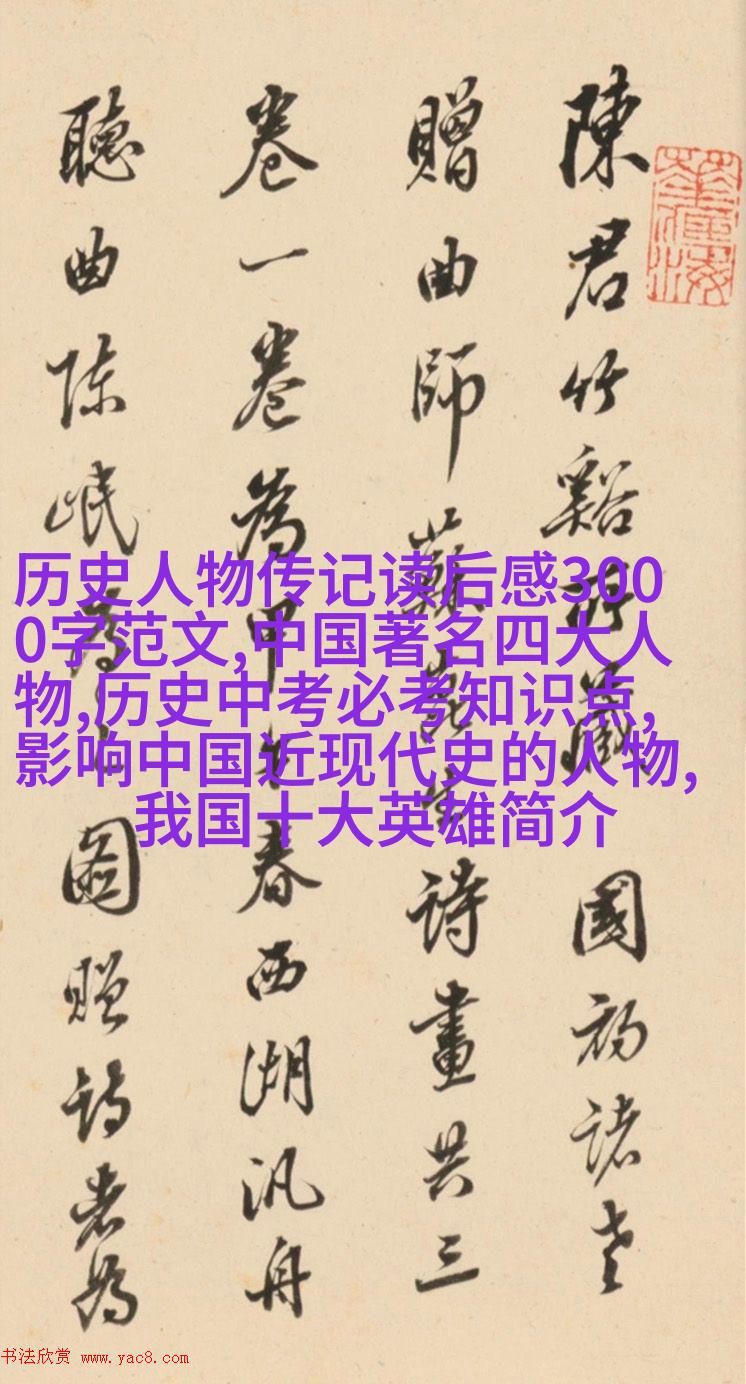 陳君竹谿所藏 國初諸老
贈曲師蘇崑生詩畫共三
卷一卷為甲午春西湖汎舟
聽曲陳岷為之圖贈詩者為
历史人物传记读后感300
0字范文,中国著名四大人
物,历史中考必考知识点,
影响中国近现代史的人物,
我国十大英雄简介
书法欣赏 www.yac8.com